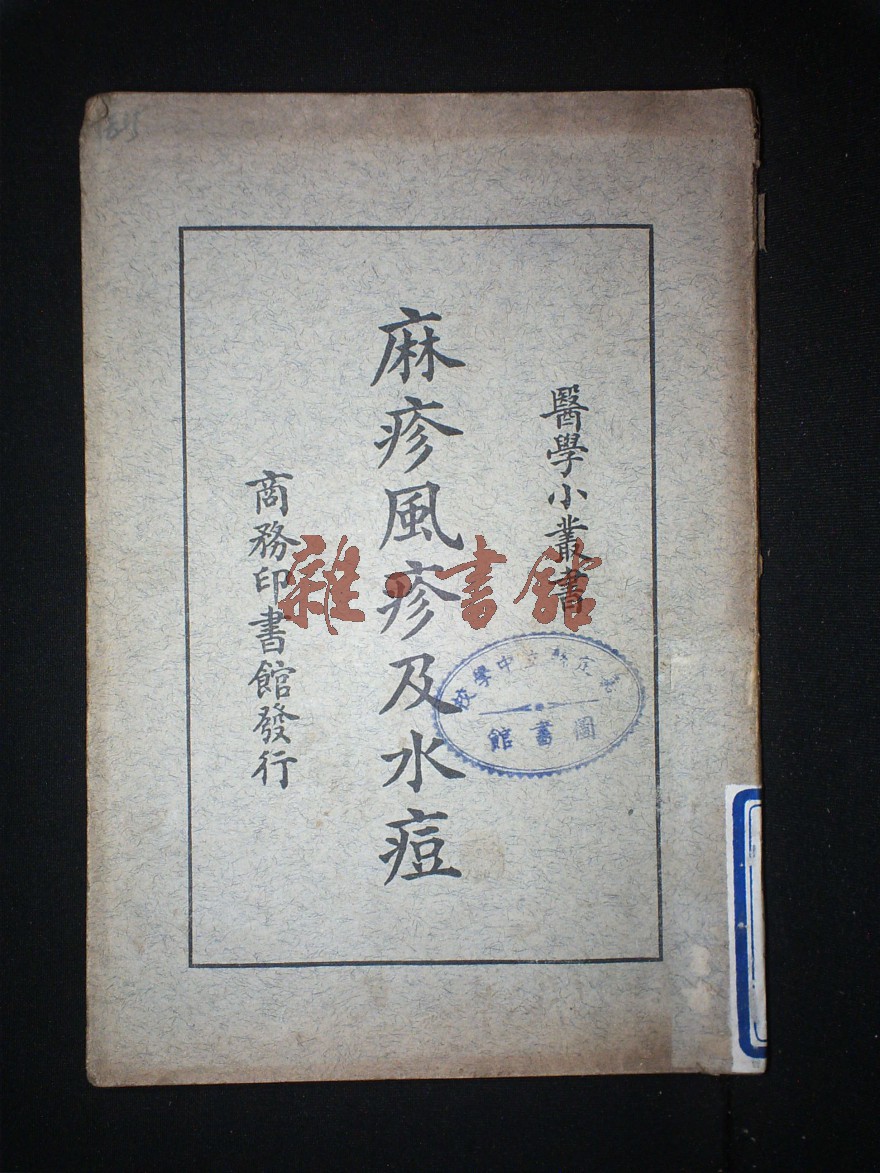 醫學小叢書
麻疹風疹及水痘
商務印書館發行
雜·書館
定縣立中學校
圖書館